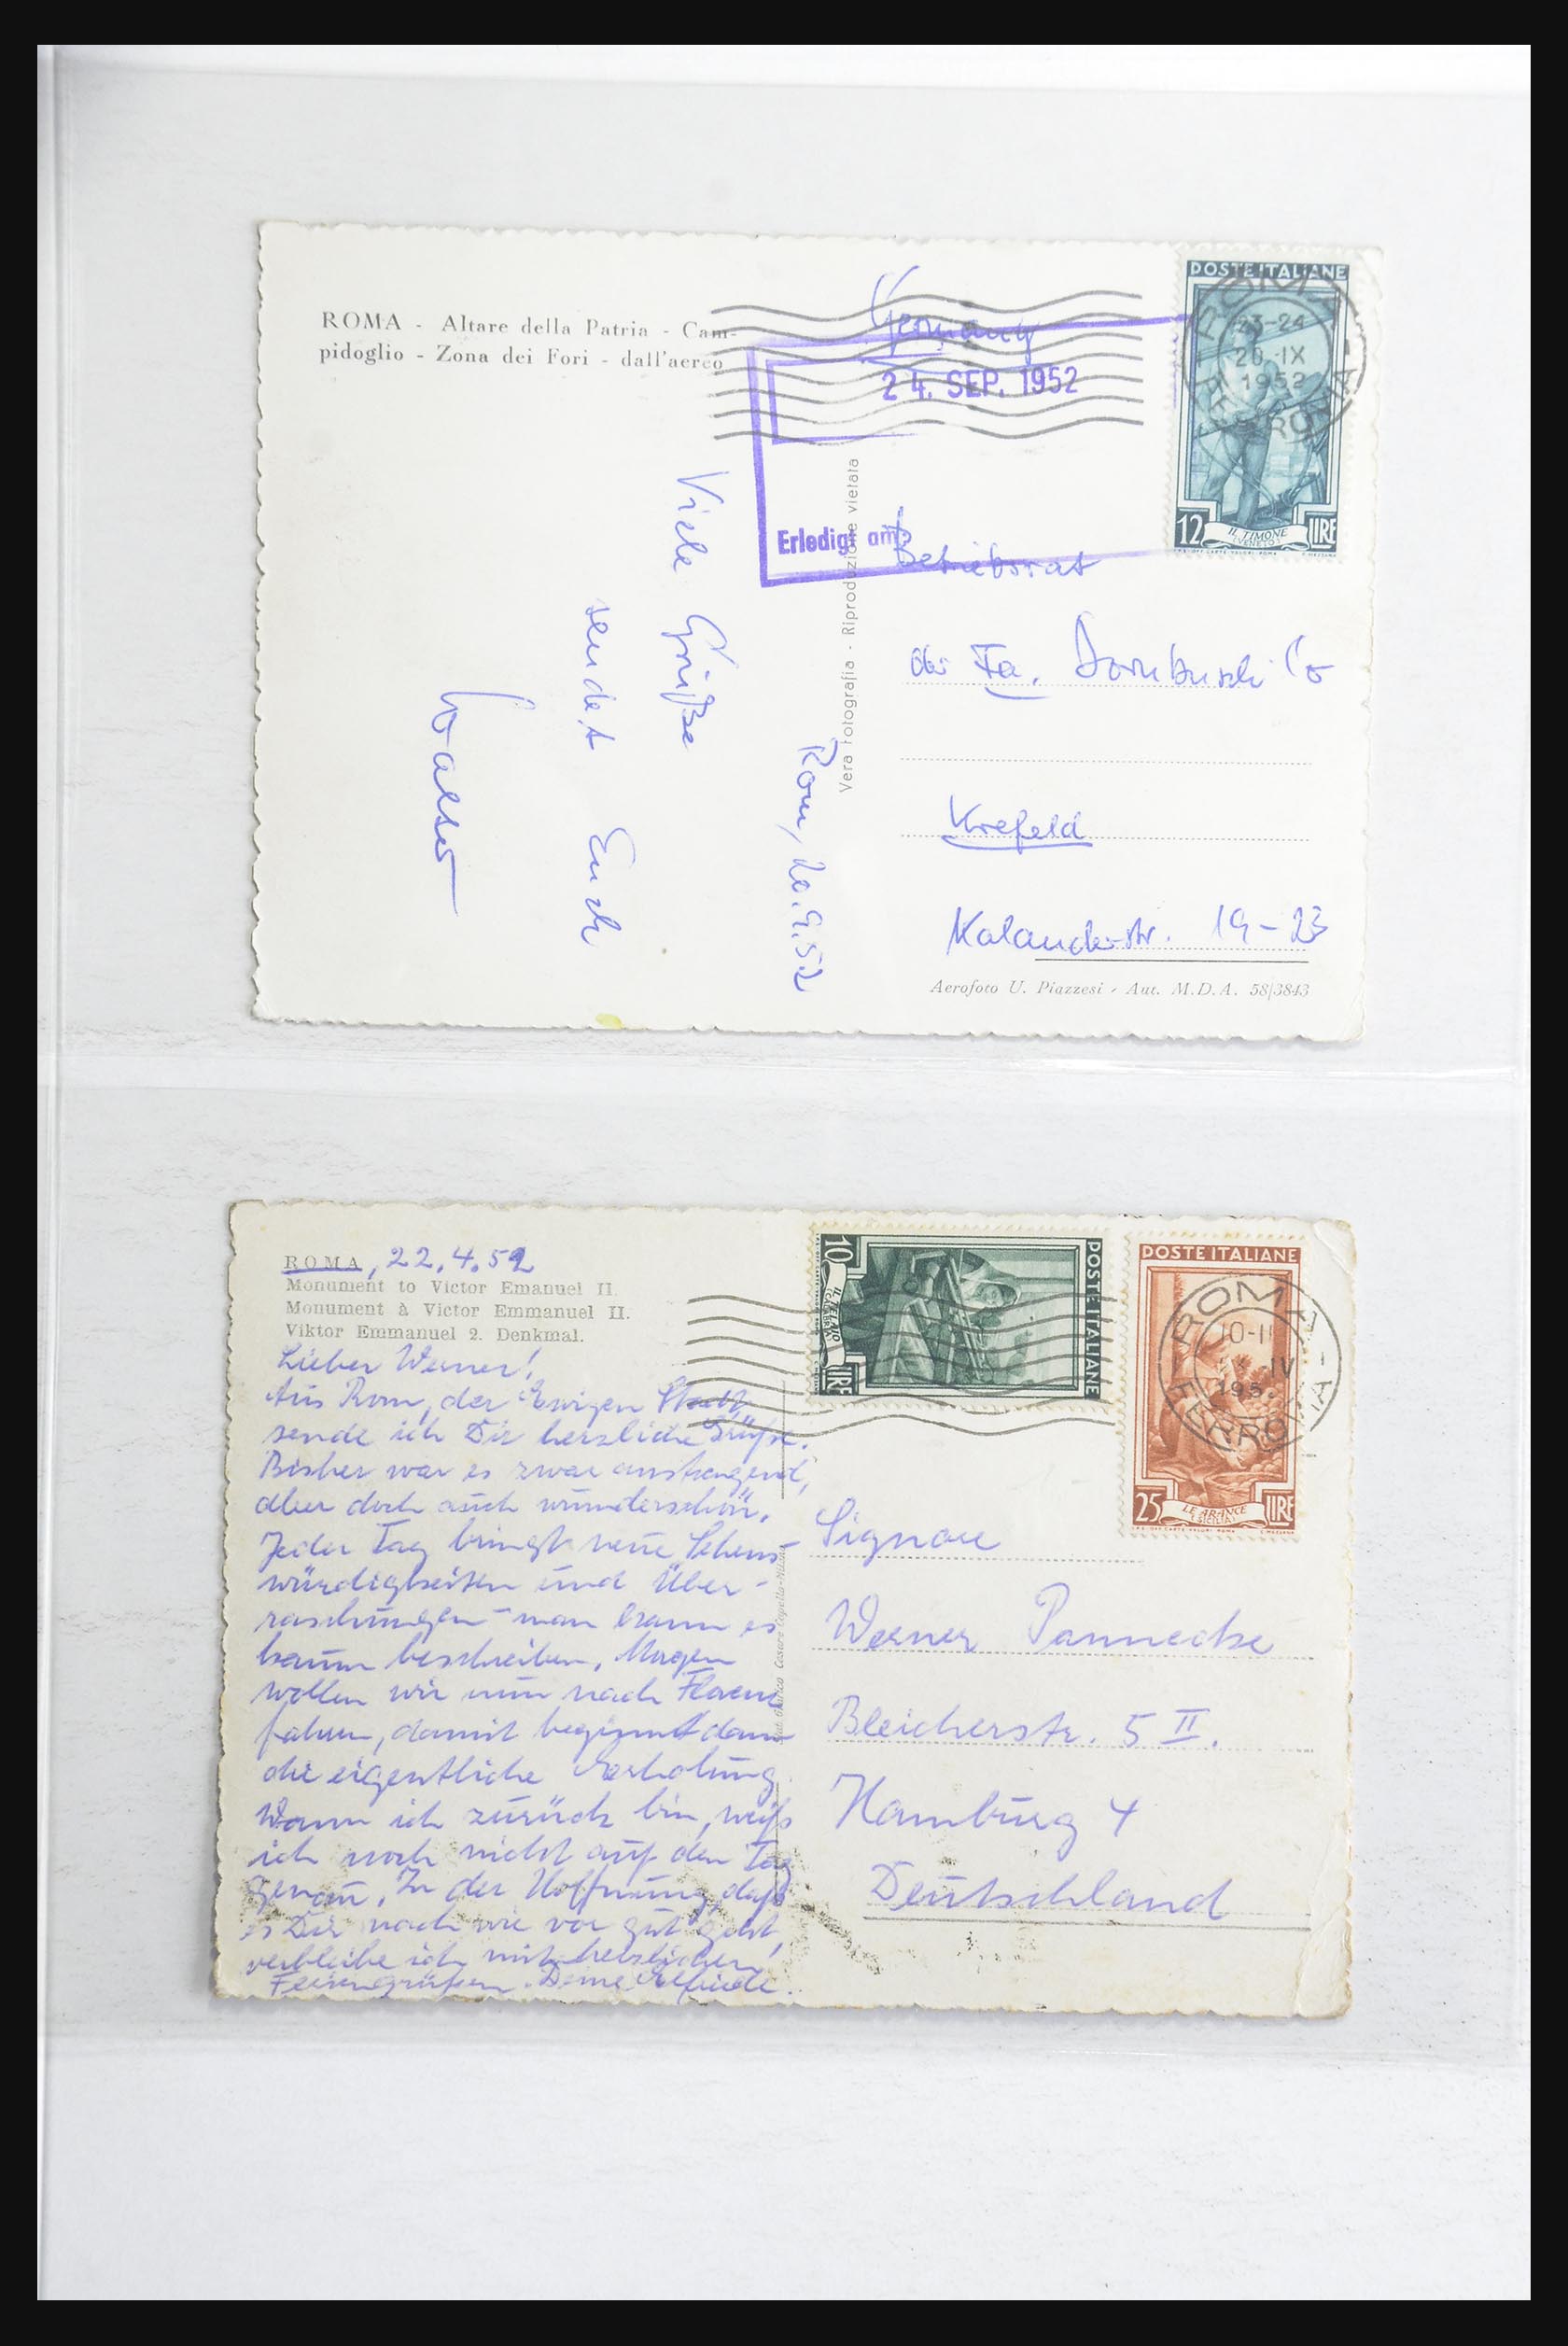 ROMA - Altare della Patria - Cam-
pidoglio - Zona dei Fori - dall'aereo
Germany
24. SEP. 1952
Erledigt am:
POSTE ITALIANE
12 IL TIMONE LIRE
(VENETO)
ROMA FERROVIA
23-24
20.IX
1952
Rom, 20.9.52
Viele Grüße
sendet Euch
Walter
Vera fotografia - Riproduzione vietata
Betriebsrat
der Fa. Dornbusch Co
Krefeld
Kalanderstr. 19-23
Aerofoto U. Piazzesi - Aut. M.D.A. 58/3843
ROMA, 22.4.52
Monument to Victor Emanuel II.
Monument à Victor Emmanuel II.
Viktor Emmanuel 2. Denkmal.
Lieber Werner!
Aus Rom, der Ewigen Stadt,
sende ich Dir herzliche Grüße.
Bisher war es zwar anstrengend,
aber doch auch wunderschön.
Jeder Tag bringt neue Sehens-
würdigkeiten und Über-
raschungen - man kann es
kaum beschreiben. Morgen
wollen wir nun nach Florenz
fahren, damit beginnt dann
die eigentliche Erholung.
Wann ich zurück bin, weiß
ich noch nicht auf den Tag
genau. In der Hoffnung, daß
es Dir nach wie vor gut geht,
verbleibe ich mit herzlichen
Feriengrüßen. Deine
POSTE ITALIANE
10 LIRE
POSTE ITALIANE
25 LE ARANCE LIRE
(SICILIA)
ROMA FERROVIA
10-11
IV
195
Signore
Werner Pannecke
Bleicherstr. 5 II.
Hamburg 4
Deutschland